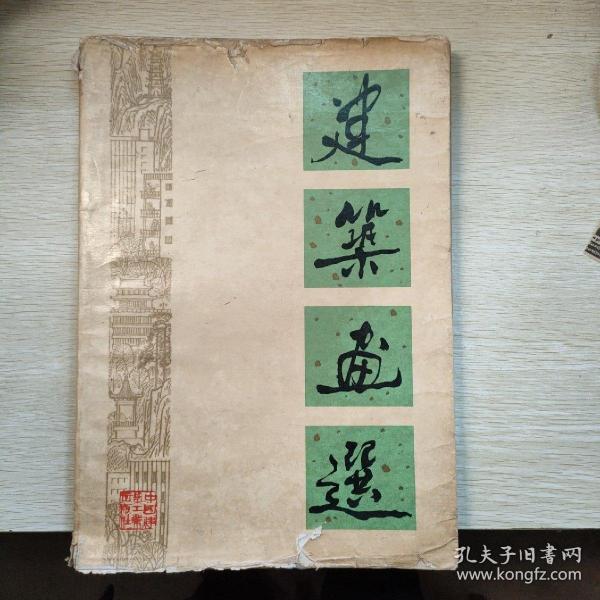 建
築
畫
選
中国建
筑工业
出版社
孔夫子旧书网
www.kongfz.com